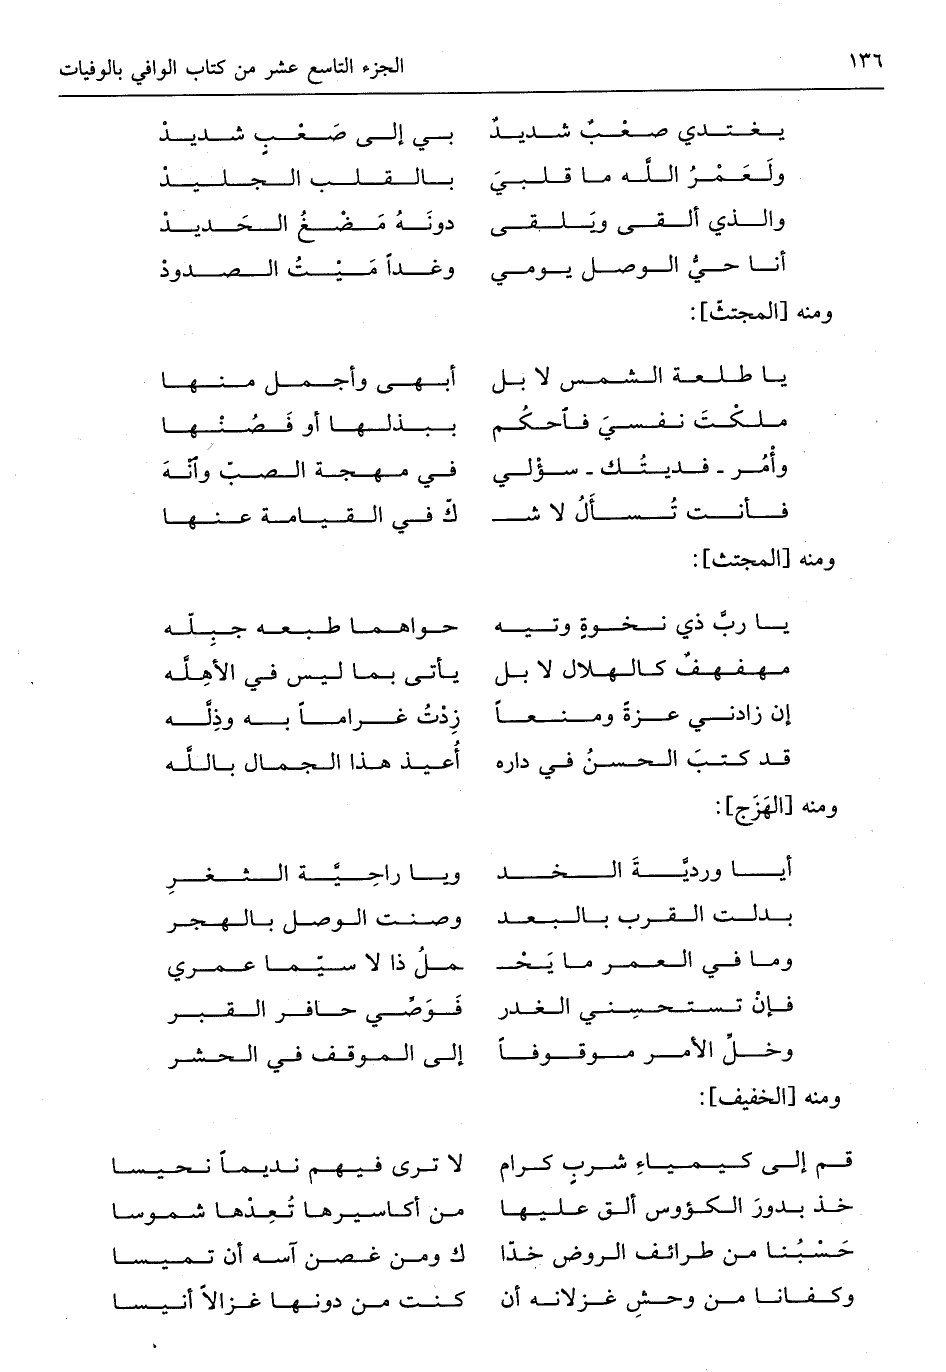 ١٣٦ الجزء التاسع عشر من كتاب الوافي بالوفيات
يغتدي صعبٌ شديدٌ بي إلى صَعْبٍ شديدْ
ولَعَمْرُ اللَّه ما قلبيَ بالقلب الجليدْ
والذي ألقى ويَلقى دونَهُ مَضْغُ الحَديدْ
أنا حيُّ الوصل يومي وغداً مَيْتُ الصدودْ
ومنه [المجتثّ]:
يا طلعة الشمس لا بل أبهى وأجمل منها
ملكْتَ نفسيَ فاَحكُم ببذلها أو فَصُنْها
وأْمُر - فديتُك - سؤلي في مهجة الصبّ وآنْهَ
فأنت تُسأَلُ لا شـ ـكّ في القيامة عنها
ومنه [المجتث]:
يا ربَّ ذي نخوةٍ وتيه حواهما طبعه جِبِلّه
مهفهفٌ كالهلال لا بل يأتي بما ليس في الأهِلَّه
إن زادني عزةً ومنعاً زِدْتُ غراماً به وذِلَّه
قد كتبَ الحسنُ في داره أُعيذ هذا الجمال باللَّه
ومنه [الهَزَج]:
أيا ورديَّةَ الخد ويا راحِيَّة الثغرِ
بدلت القرب بالبعد وصنت الوصل بالهجر
وما في العمر ما يَحْـ ـملُ ذا لا سيّما عمري
فإنْ تستحسِني الغدر فَوَصِّي حافر القبر
وخلِّ الأمر موقوفاً إلى الموقف في الحشر
ومنه [الخفيف]:
قم إلى كيمياءِ شربٍ كرام لا ترى فيهم نديماً نحيسا
خذ بدورَ الكؤوس ألق عليها من أكاسيرها تُعِدْها شموسا
حَسْبُنا من طرائف الروض خدّا ك ومن غصن آسه أن تميسا
وكفانا من وحشِ غزلانه أن كنت من دونها غزالاً أنيسا